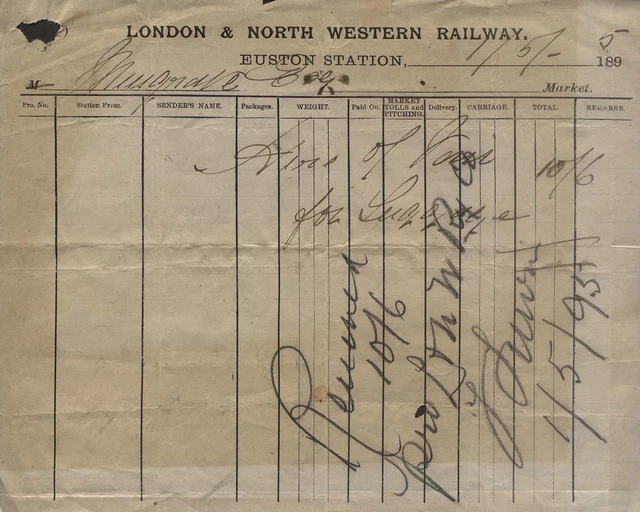 LONDON & NORTH WESTERN RAILWAY.
EUSTON STATION, 1/5/- 1895
M Musgrave & Co Market.
Pro. No. Station From. SENDER'S NAME. Packages. WEIGHT. Paid On. MARKET TOLLS and PITCHING. Delivery. CARRIAGE. TOTAL. REMARKS.
Hire of Van 10/6
for Luggage
Received
10/6
pro L & N W R Co
1/5/95